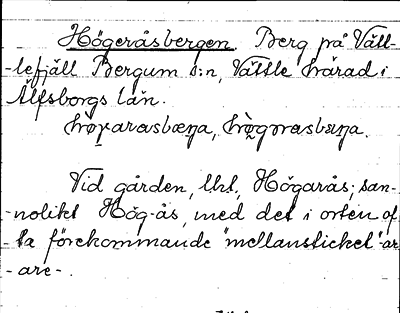 Högeråsbergen. Berg på Vätt-
-lefjäll Bergum s:n, Vättle härad i
Älfsborgs län.
Vid gården, lht, Högarås; san-
-nolikt Hög-ås, med det i orten of
-ta förekommande "mellansticket"-ar
-are-.